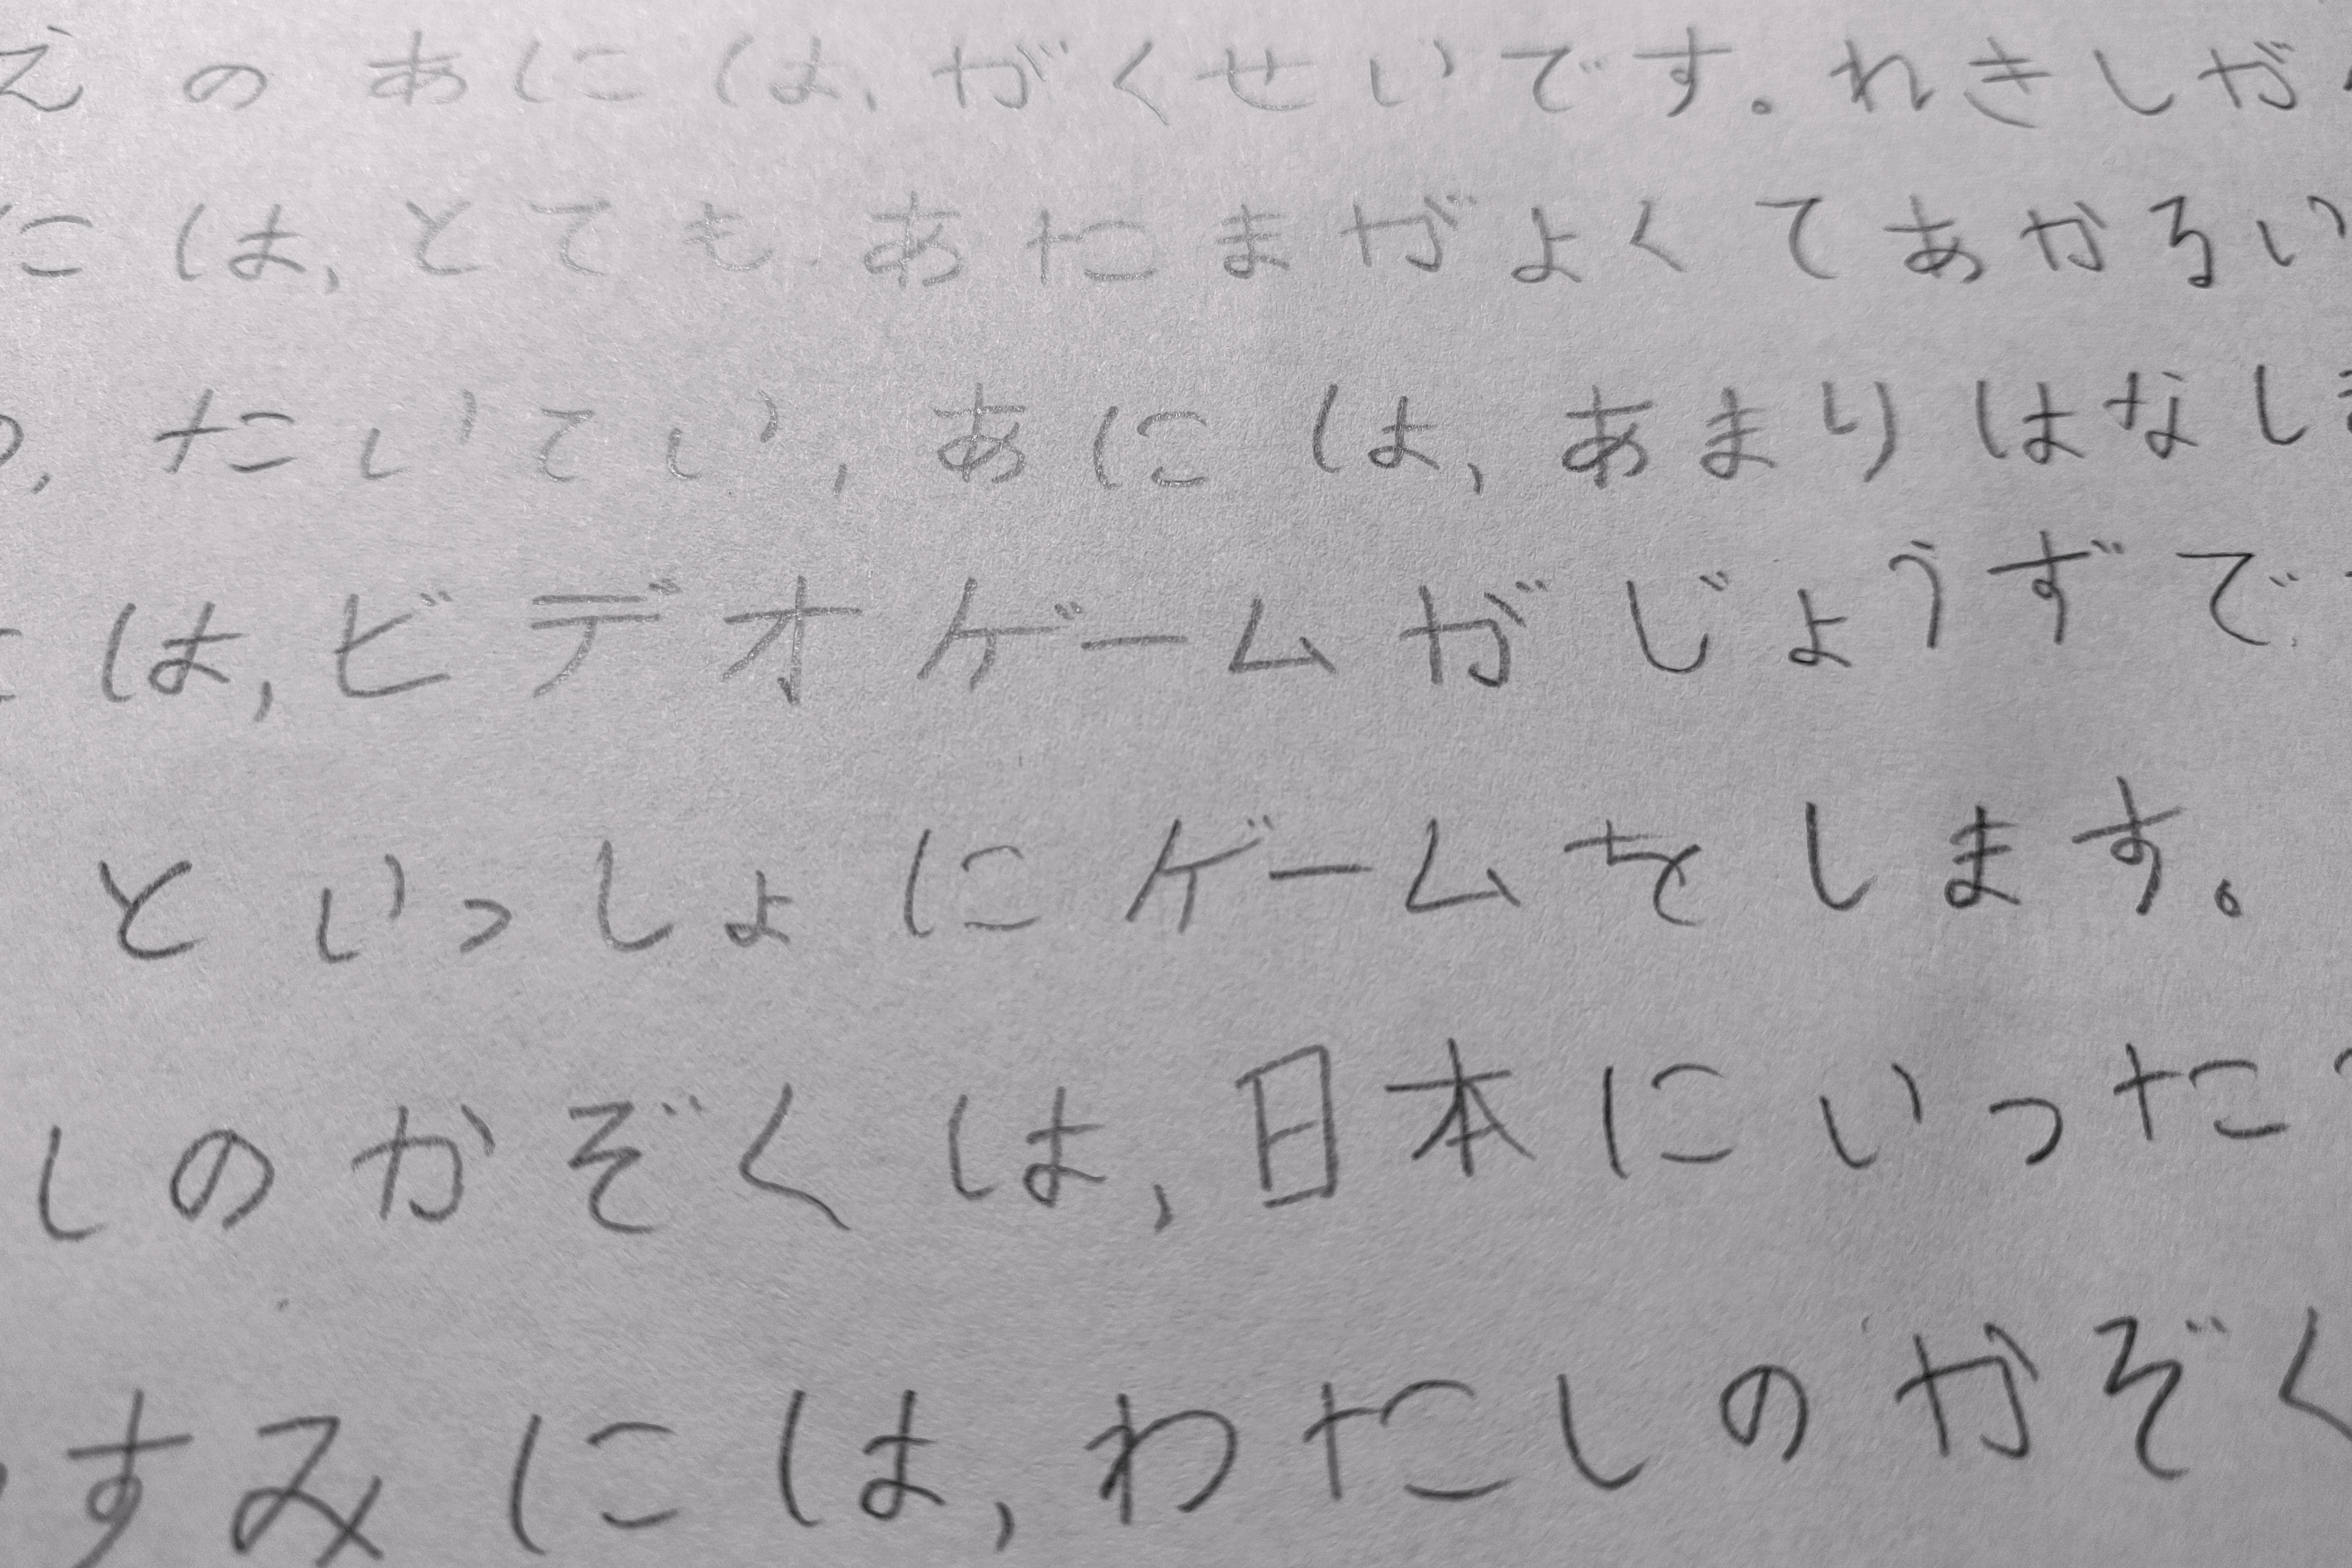 えのあには、がくせいです。れきしが
には、とても、あたまがよくてあかるい
、たいてい、あには、あまりはなしま
は、ビデオゲームがじょうずで
といっしょにゲームをします。
しのかぞくは、日本にいった
すみには、わたしのかぞく